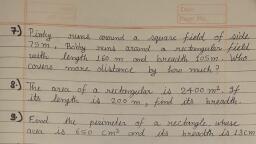 Date
Page No.
7.) Pinky runs around a square field of side
75m, Bobby runs around a rectangular field
with length 160 m and breadth 105m. Who
covers more distance by how much?
8.) The area of a rectangular is 2400 m². If
its length is 200 m, find its breadth.
9.) Find the perimeter of a rectangle whose
area is 650 cm² and its breadth is 13cm